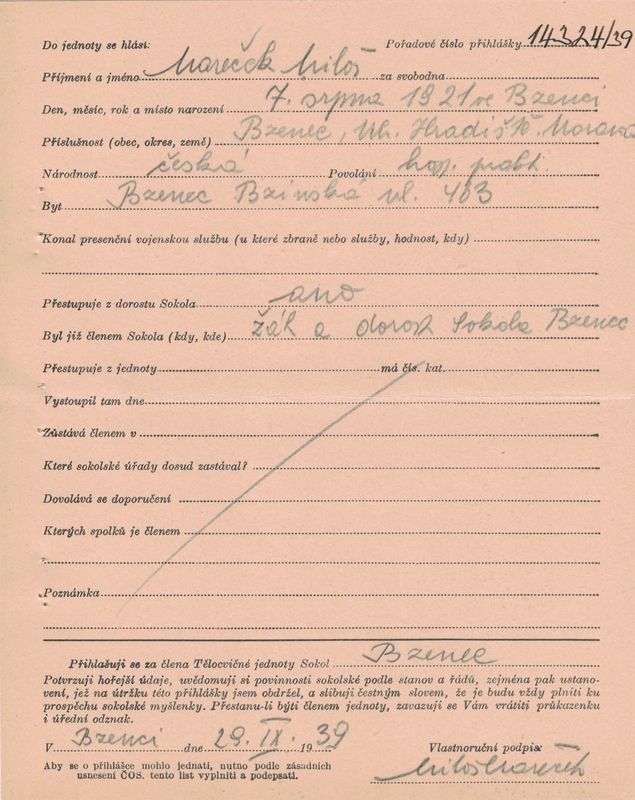 Do jednoty se hlásí: Pořadové číslo přihlášky 14324/39
Příjmení a jméno Mareček Miloš za svobodna
Den, měsíc, rok a místo narození 7. srpna 1921 ve Bzenci
Příslušnost (obec, okres, země) Bzenec, Uh. Hradiště. Morava
Národnost česká Povolání hosp. prakt.
Byt Bzenec Bzinská ul. 403
Konal presenční vojenskou službu (u které zbraně nebo služby, hodnost, kdy)
Přestupuje z dorostu Sokola ano
Byl již členem Sokola (kdy, kde) žák a dorost Sokola Bzenec
Přestupuje z jednoty má čís. kat.
Vystoupil tam dne
Zůstává členem v
Které sokolské úřady dosud zastával?
Dovolává se doporučení
Kterých spolků je členem
Poznámka
Přihlašuji se za člena Tělocvičné jednoty Sokol Bzenec
Potvrzuji hořejší údaje, uvědomuji si povinnosti sokolské podle stanov a řádů, zejména pak ustano-
vení, jež na útržku této přihlášky jsem obdržel, a slibuji čestným slovem, že je budu vždy plniti ku
prospěchu sokolské myšlenky. Přestanu-li býti členem jednoty, zavazuji se Vám vrátiti průkazenku
i úřední odznak.
V Bzenci dne 29. IX. 1939 Vlastnoruční podpis:
Aby se o přihlášce mohlo jednati, nutno podle zásadních
usnesení ČOS. tento list vyplniti a podepsati.
Miloš Mareček